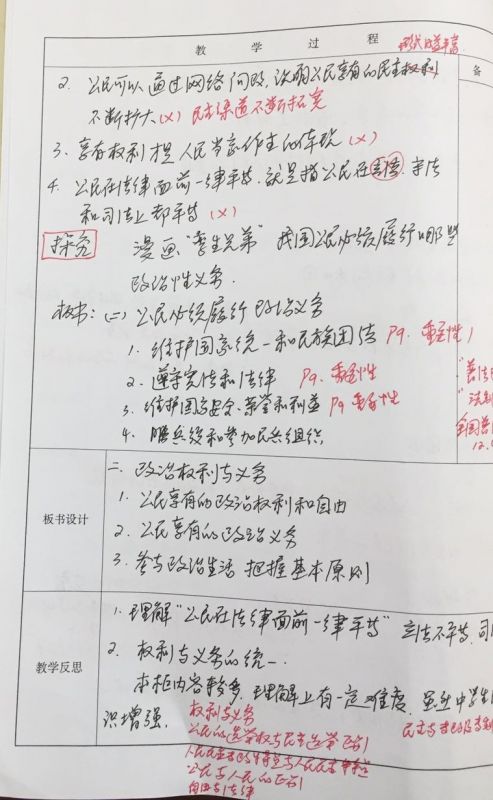 教 学 过 程
备
2. 公民可以通过网络问政,说明公民享有的民主权利
不断扩大(×) 民主渠道不断拓宽
3. 享有权利才是人民当家作主的体现(×)
4. 公民在法律面前一律平等,就是指公民在立法、守法
和司法上都平等(×)
探究 漫画"孪生兄弟" 我国公民必须履行哪些
政治性义务.
板书:(二)公民必须履行政治义务
1. 维护国家统一和民族团结 P9. 重要性
2. 遵守宪法和法律 P9. 重要性
3. 维护国家安全、荣誉和利益 P9 重要性
4. 服兵役和参加民兵组织
全国
12.
板书设计
二. 政治权利与义务
1. 公民享有的政治权利和自由
2. 公民享有的政治义务
3. 参与政治生活 把握基本原则
教学反思
1. 理解"公民在法律面前一律平等" 立法不平等,司
2. 权利与义务的统一.
本框内容较多,理解上有一定难度,虽然中学生
识增强.
权利与义务
公民的选举权与民主选举区别
公民与人民的区别
自由与法律